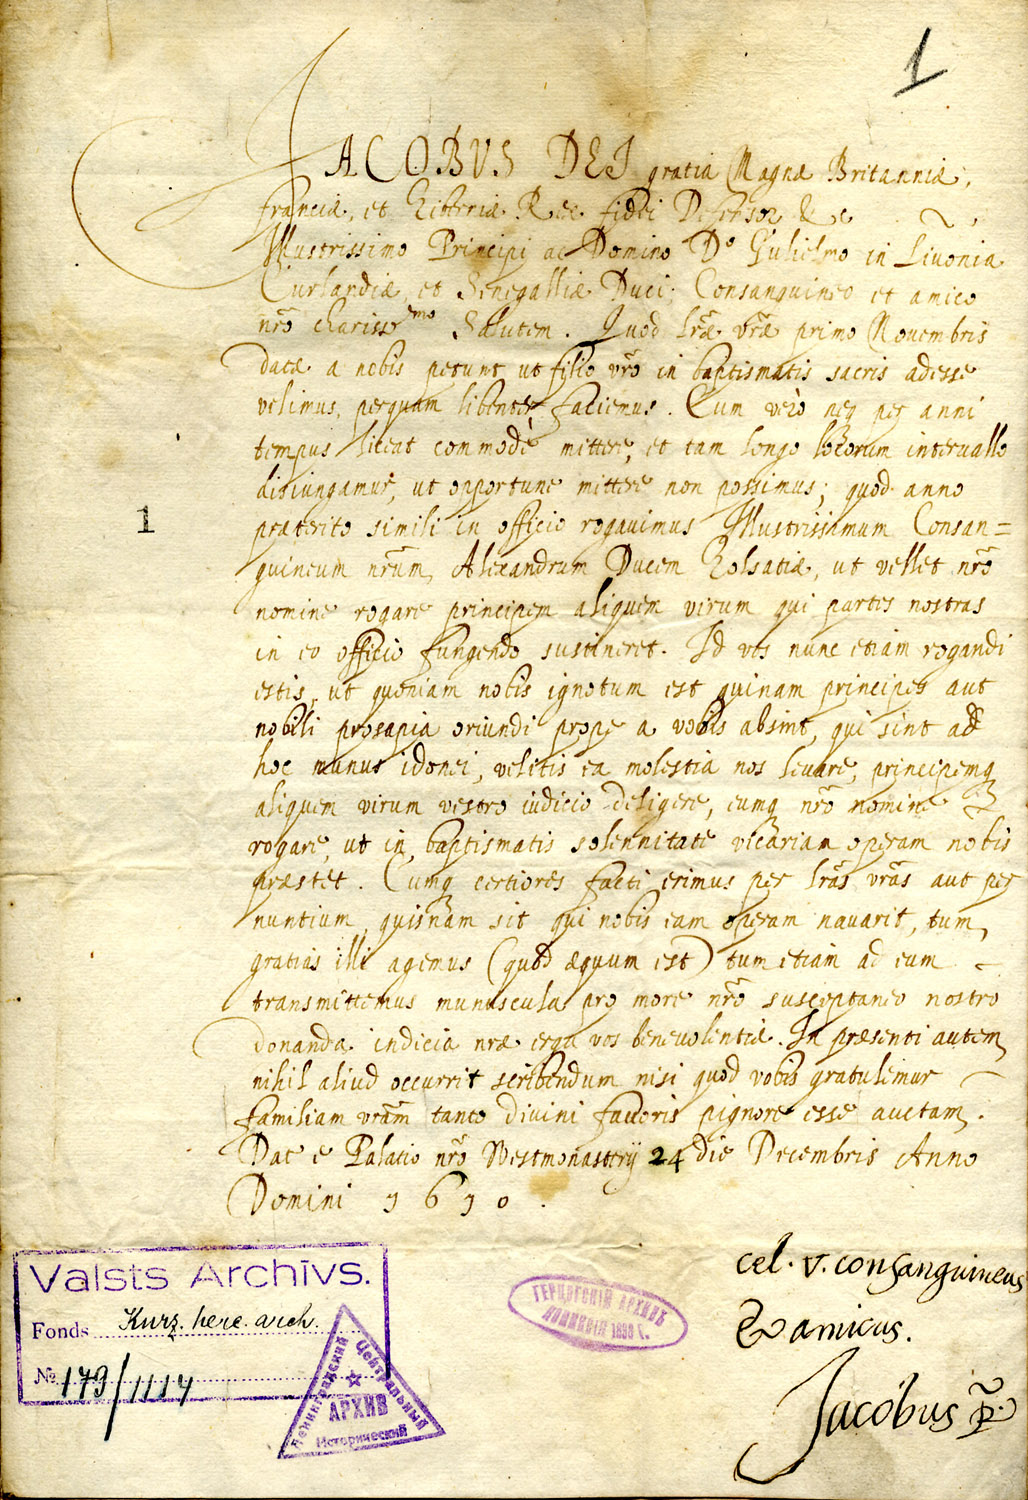 1
JACOBUS DEI gratia Magnæ Britanniæ,
Franciæ, et Hiberniæ Rex fidei Defensor &c
Illustrissimo Principi ac Domino Dº Gulielmo in Livonia
Curlandiæ, et Senegalliæ Duci, Consanguineo et amico
nr̃o chariss^emo Salutem. Quod lr̃æ vr̃æ primo Novembris
datæ a nobis petunt ut filio vr̃o in baptismatis sacris adesse
velimus, perquam libenter faciemus. Cum verò neq per anni
tempus liceat commodè mittere, et tam longo locorum intervallo
disiungamur, ut opportune mittere non possimus; quod anno
præterito simili in officio rogavimus Illustrissimum Consan=
guineum nr̃um, Alexandrum Ducem Holsatiæ, ut vellet nr̃o
nomine rogare principem aliquem virum qui partes nostras
in eo officio fungendo sustineret. Id vos nunc etiam rogandi
estis, ut quoniam nobis ignotum est quinam principes aut
nobili prosapia oriundi prope a vobis absint, qui sint ad
hoc munus idonei, velitis ea molestia nos levare, principemq
aliquem virum vestro iudicio deligere, eumq nr̃o nomine
rogare, ut in baptismatis solennitate vicariam operam nobis
præstet. Cumq certiores facti erimus per lr̃as vr̃as aut per
nuntium, quisnam sit qui nobis eam operam navarit, tum
gratias illi agemus (quod æquum est) tum etiam ad eum
transmittemus munuscula pro more nr̃o susceptaneo nostro
donanda indicia nræ erga vos benevolentiæ. In præsenti autem
nihil aliud occurrit scribendum nisi quod vobis gratulemur
familiam vr̃am tanto divini favoris pignore esse auctam.
Dat e Palatio nr̃o Westmonasterij 24 die Decembris Anno
Domini 1610.
1
cel. v. consanguineus
& amicus.
Jacobus R.
Valsts Archīvs.
Fonds Kurz. herc. arch.
№ 179/1114
Ленинградский Центральный
АРХИВ
Исторический
ГЕРЦОГСКІЙ АРХИВЪ
1890 г.